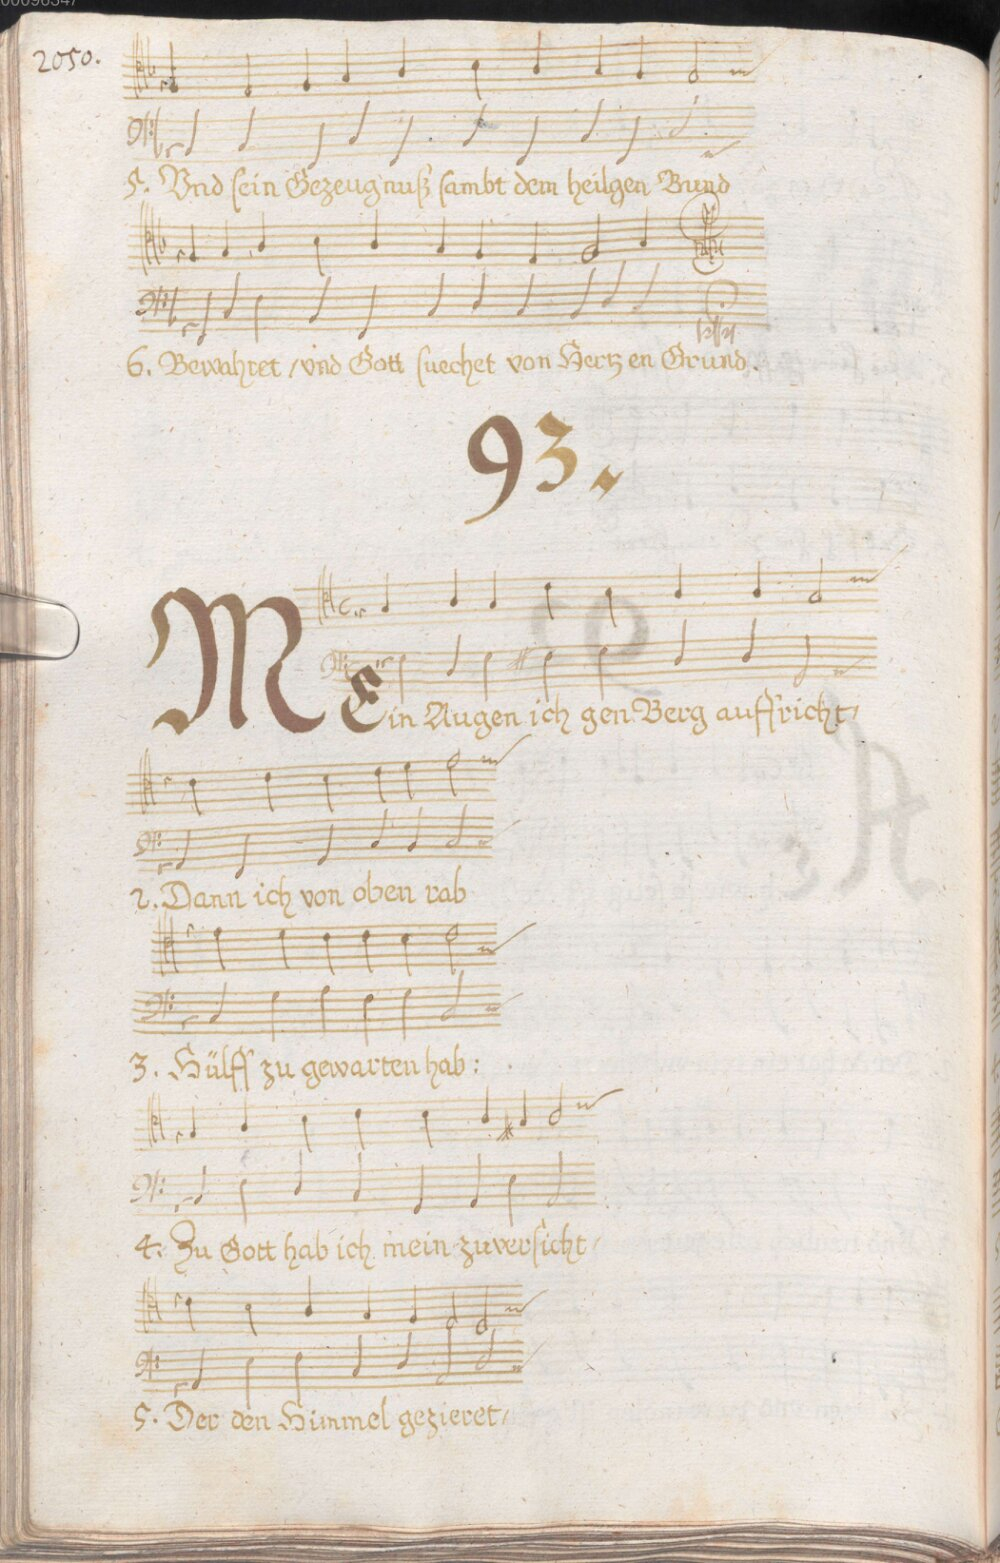 2050.
5. Vnd sein Gezeugnuß sambt dem heilgen Bund
6. Bewahret / vnd Gott suechet von Hertzen Grund.
93.
MEin Augen ich gen Berg auffricht /
2. Dann ich von oben rab
3. Hülff zu gewarten hab:
4. Zu Gott hab ich mein zuversicht /
5. Der den Himmel gezieret /